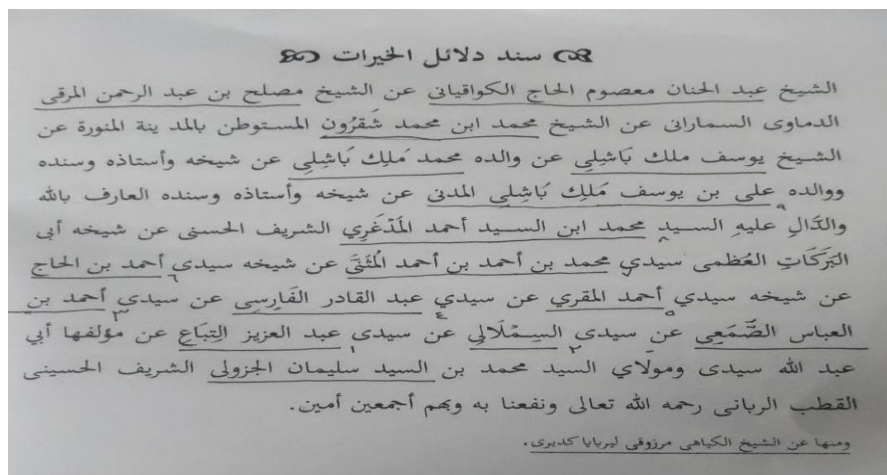 سند دلائل الخيرات
الشيخ عبد الحنان معصوم الحاج الكواقياني عن الشيخ مصلح بن عبد الرحمن المرقى
الدماوى السمارانى عن الشيخ محمد ابن محمد شَقرُون المستوطن بالمد ينة المنورة عن
الشيخ يوسف ملك بَاشِلِي عن والده محمد مَلِك بَاشِلِي عن شيخه وأستاذه وسنده
ووالده على بن يوسف مَلِك بَاشِلِي المدنى عن شيخه وأستاذه وسنده العارف بالله
والدَّال عليهِ السيد محمد ابن السيد أحمد المَدْغَرِي الشريف الحسنى عن شيخه أبى
البَرَكَاتِ العُظمى سيدي محمد بن أحمد بن أحمد المُثَنَّى عن شيخه سيدى أحمد بن الحاج
عن شيخه سيدي أحمد المقري عن سيدي عبد القادر الفَارِسِى عن سيدى أحمد بن
العباس الصَّمَعِي عن سيدى السِمْلَالِي عن سيدى عبد العزيز التِبَاعِ عن مؤلفها أبي
عبد الله سيدى ومولَاي السيد محمد بن السيد سليمان الجزولى الشريف الحسينى
القطب الربانى رحمه الله تعالى ونفعنا به وبهم أجمعين أمين.
ومنها عن الشيخ الكياهى مرزوقى ليربايا كديرى.